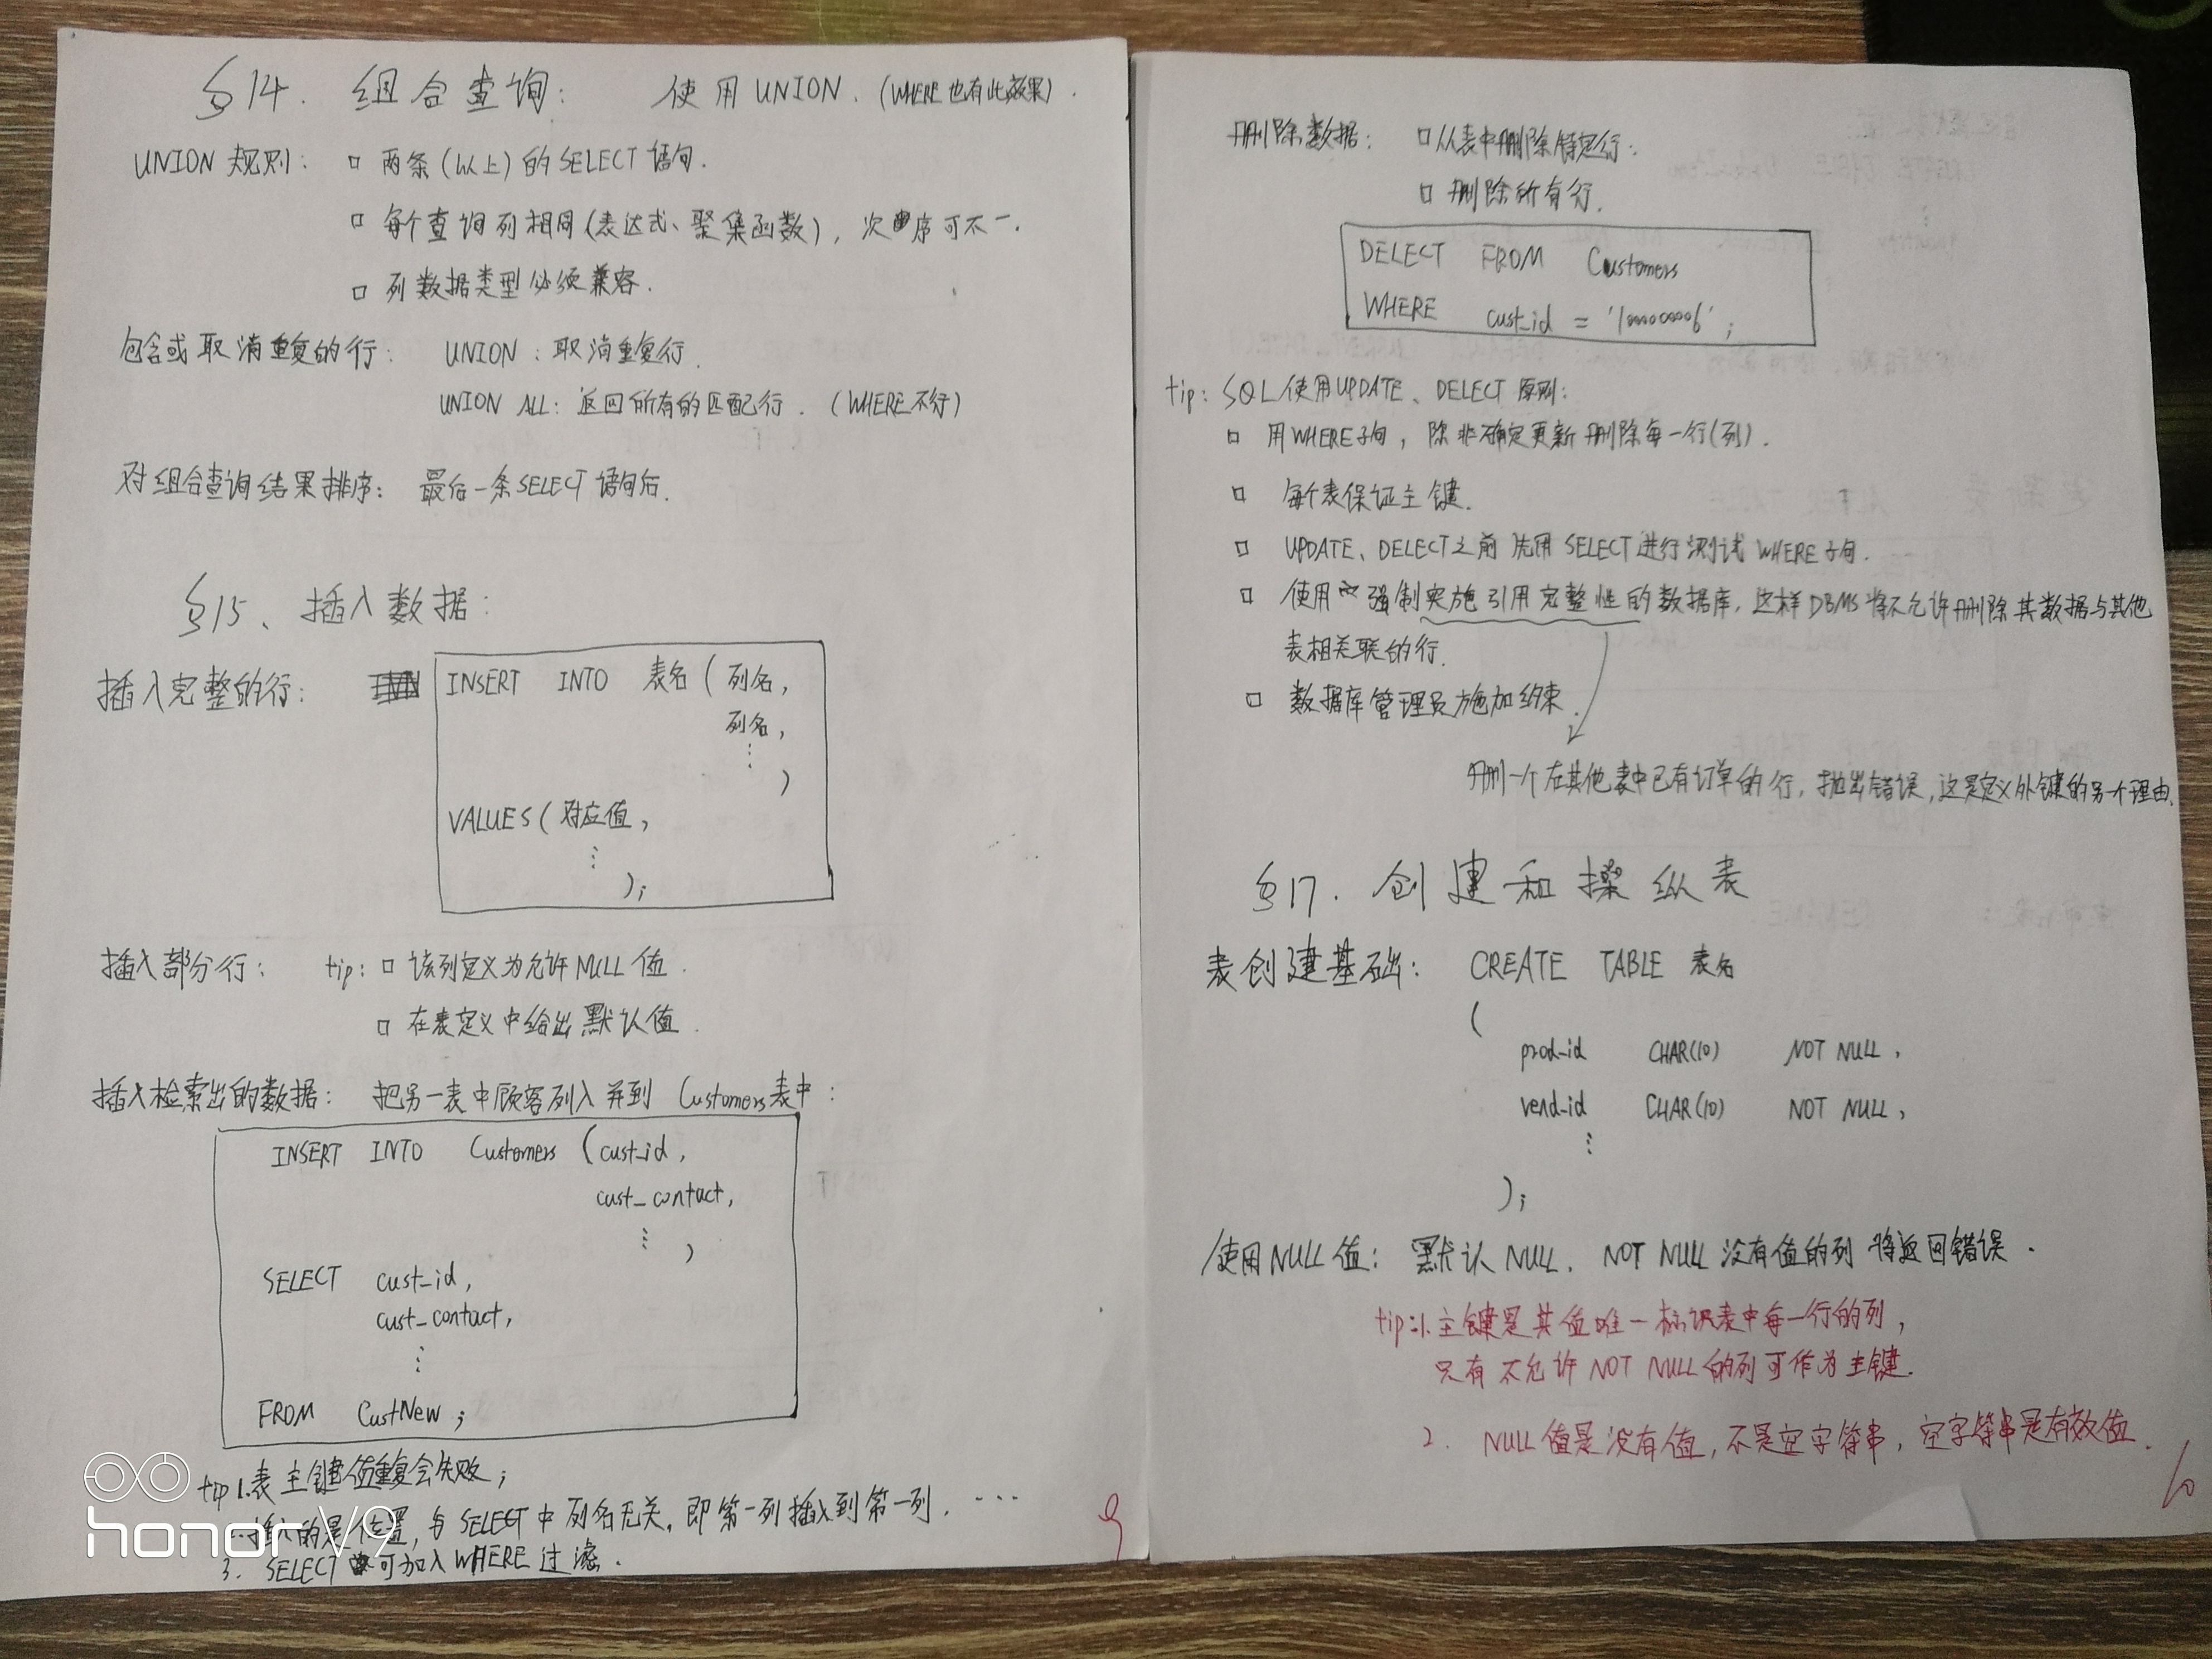 §14. 组合查询: 使用UNION. (WHERE也有此效果).
UNION规则: □ 两条(以上)的SELECT语句.
□ 每个查询列相同(表达式、聚集函数), 次序可不一.
□ 列数据类型必须兼容.
包含或取消重复的行: UNION: 取消重复行.
UNION ALL: 返回所有的匹配行. (WHERE不行)
对组合查询结果排序: 最后一条SELECT语句后.
§15、插入数据:
插入完整的行: INSERT INTO 表名(列名,
列名,
⋮
)
VALUES(对应值,
⋮
);
插入部分行: tip: □ 该列定义为允许NULL值.
□ 在表定义中给出默认值.
插入检索出的数据: 把另一表中顾客列入并到Customers表中:
INSERT INTO Customers (cust_id,
cust_contact,
⋮
)
SELECT cust_id,
cust_contact,
⋮
FROM CustNew;
tip 1.表主键值重复会失败;
2.插入的是位置, 与SELECT中列名无关, 即第一列插入到第一列. …
3. SELECT可加入WHERE过滤.
9
honor V9
删除数据: □ 从表中删除特定行:
□ 删除所有行.
DELECT FROM Customers
WHERE cust_id = '1000000006';
tip: SQL使用UPDATE、DELECT原则:
□ 用WHERE子句, 除非确定更新删除每一行(列).
□ 每个表保证主键.
□ UPDATE、DELECT之前先用SELECT进行测试WHERE子句.
□ 使用强制实施引用完整性的数据库, 这样DBMS将不允许删除其数据与其他
表相关联的行.
□ 数据库管理员施加约束.
删一个在其他表中已有订单的行, 抛出错误, 这是定义外键的另一个理由.
§17. 创建和操纵表
表创建基础: CREATE TABLE 表名
(
prod_id CHAR(10) NOT NULL,
vend_id CHAR(10) NOT NULL,
⋮
);
使用NULL值: 默认NULL. NOT NULL没有值的列将返回错误.
tip:1.主键是其值唯一标识表中每一行的列,
只有不允许NOT NULL的列可作为主键.
2. NULL值是没有值, 不是空字符串, 空字符串是有效值.
10